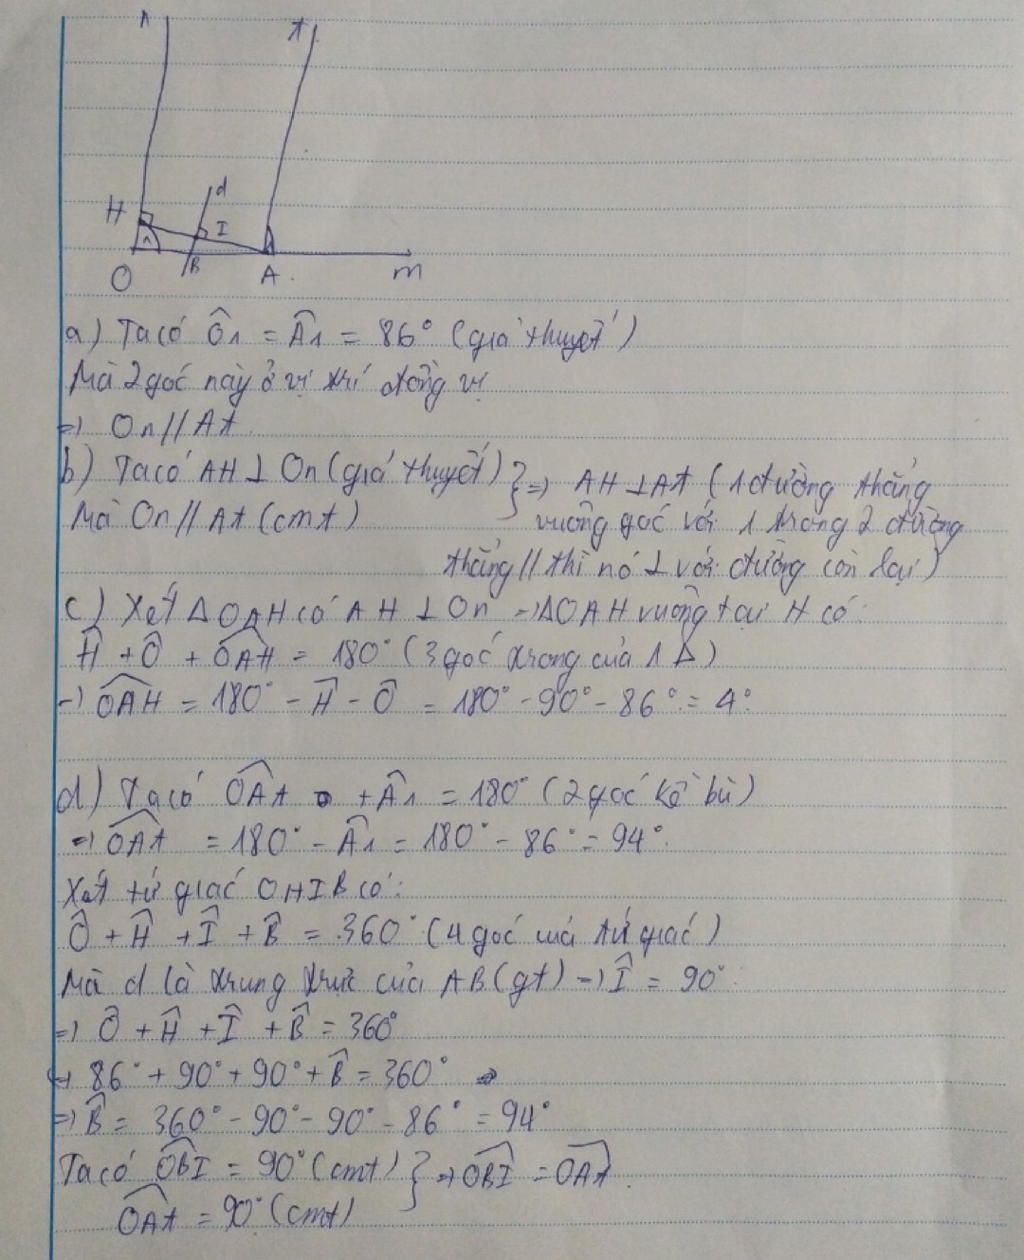 n t
H d
I
O B A m
a) Ta có Ô1 = Â1 = 86° (giả thuyết)
Mà 2 góc này ở vị trí đồng vị
=> On // At
b) Ta có AH ⊥ On (giả thuyết) } => AH ⊥ At (1 đường thẳng
Mà On // At (cmt) vuông góc với 1 trong 2 đường
thẳng // thì nó ⊥ với đường còn lại)
c) Xét △OAH có AH ⊥ On => △OAH vuông tại H có:
Ĥ + Ô + \widehat{OAH} = 180° (3 góc trong của 1 △)
=> \widehat{OAH} = 180° - Ĥ - Ô = 180° - 90° - 86° = 4°
d) Ta có \widehat{OAt} + Â1 = 180° (2 góc kề bù)
=> \widehat{OAt} = 180° - Â1 = 180° - 86° = 94°
Xét tứ giác OHIB có:
Ô + Ĥ + Î + B̂ = 360° (4 góc của tứ giác)
Mà d là trung trực của AB (gt) => Î = 90°
=> Ô + Ĥ + Î + B̂ = 360°
<=> 86° + 90° + 90° + B̂ = 360°
=> B̂ = 360° - 90° - 90° - 86° = 94°
Ta có \widehat{OBI} = 90° (cmt) } => \widehat{OBI} = \widehat{OAt}.
\widehat{OAt} = 90° (cmt)